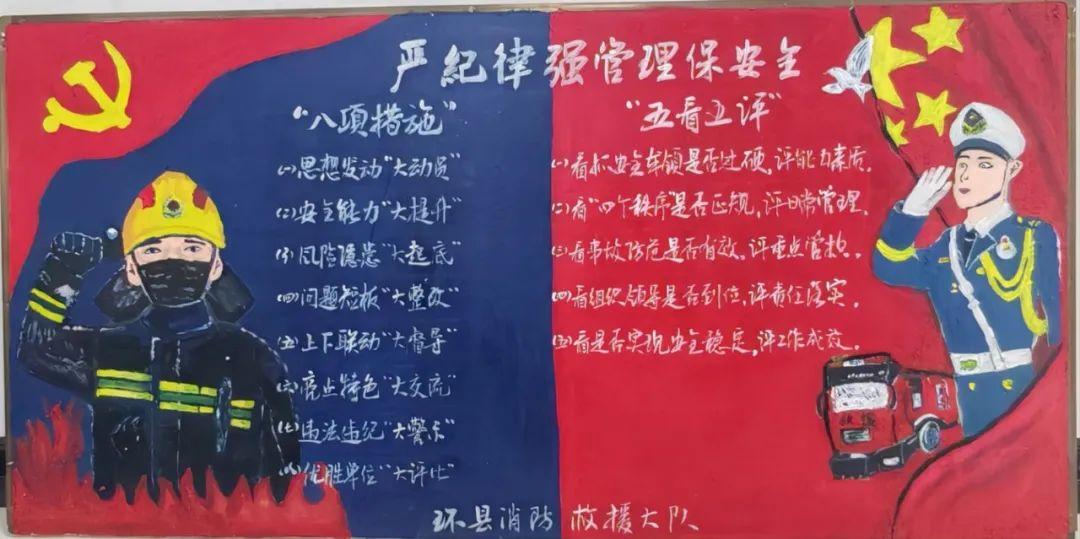 严纪律强管理保安全
"八项措施"
(一)思想发动"大动员"
(二)安全能力"大提升"
(三)风险隐患"大起底"
(四)问题短板"大整改"
(五)上下联动"大督导"
(六)亮点特色"大交流"
(七)违法违纪"大警示"
(八)优胜单位"大评比"
"五看五评"
(一)看抓安全本领是否过硬,评能力素质。
(二)看"四个秩序"是否正规,评日常管理。
(三)看事故防范是否有效,评重点管控。
(四)看组织领导是否到位,评责任落实。
(五)看是否实现安全稳定,评工作成效。
环县消防救援大队